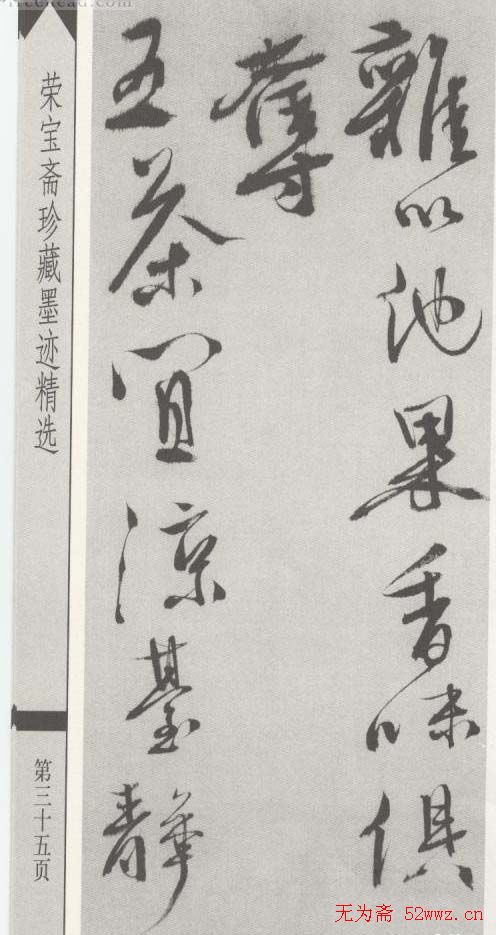 雜以他果香味俱
奪
五茶宜涼臺靜
荣宝斋珍藏墨迹精选
第三十五页
无为斋 52wwz.cn